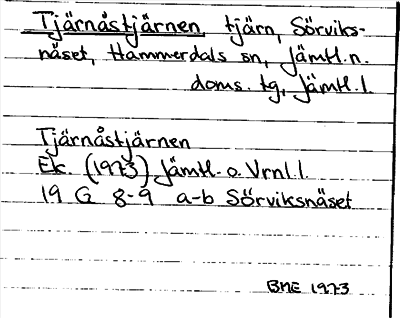 Tjärnåstjärnen, tjärn, Sörviks-
näset, Hammerdals sn, Jämtl. n.
doms. tg, Jämtl. l.
Tjärnåstjärnen
Ek. (1973) Jämtl. o. Vrnl. l.
19 G 8-9 a-b Sörviksnäset
BME 1973